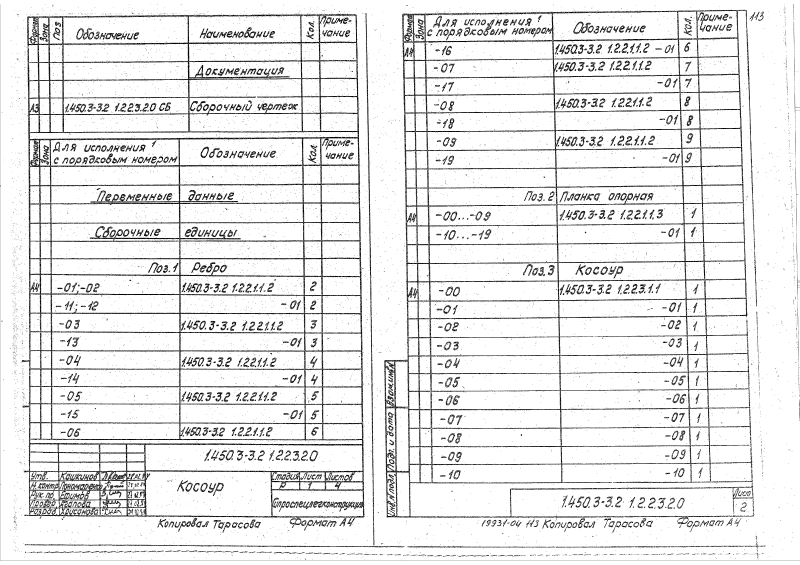 Формат Зона Поз Обозначение Наименование Кол. Примечание
Документация
А3 1.450.3-3.2 1.2.2.3.2.0 СБ Сборочный чертеж
Формат Зона Для исполнения 1 с порядковым номером Обозначение Кол. Примечание
Переменные данные
Сборочные единицы
Поз.1 Ребро
А4 -01;-02 1.450.3-3.2 1.2.2.1.1.2 2
-11;-12 -01 2
-03 1.450.3-3.2 1.2.2.1.1.2 3
-13 -01 3
-04 1.450.3-3.2 1.2.2.1.1.2 4
-14 -01 4
-05 1.450.3-3.2 1.2.2.1.1.2 5
-15 -01 5
-06 1.450.3-3.2 1.2.2.1.1.2 6
1.450.3-3.2 1.2.2.3.2.0
Утв. Кашкинов
Н. контр. Пономаренко
Рук. гр. Ефимов
Провер. Агапова
Разраб. Хрисанова
Косоур
Стадия Лист Листов
Р 1 4
Гипроспецлегконструкция
Копировал Тарасова Формат А4
113
Формат Зона Для исполнения 1 с порядковым номером Обозначение Кол. Примечание
А4 -16 1.450.3-3.2 1.2.2.1.1.2 -01 6
-07 1.450.3-3.2 1.2.2.1.1.2 7
-17 -01 7
-08 1.450.3-3.2 1.2.2.1.1.2 8
-18 -01 8
-09 1.450.3-3.2 1.2.2.1.1.2 9
-19 -01 9
Поз.2 Планка опорная
А4 -00...-09 1.450.3-3.2 1.2.2.1.1.3 1
-10...-19 -01 1
Поз.3 Косоур
А4 -00 1.450.3-3.2 1.2.2.3.1.1 1
-01 -01 1
-02 -02 1
-03 -03 1
-04 -04 1
-05 -05 1
-06 -06 1
-07 -07 1
-08 -08 1
-09 -09 1
-10 -10 1
Инв.№подл. Подп. и дата Взам.инв.№
1.450.3-3.2 1.2.2.3.2.0
Лист
2
19931-04 113 Копировал Тарасова Формат А4